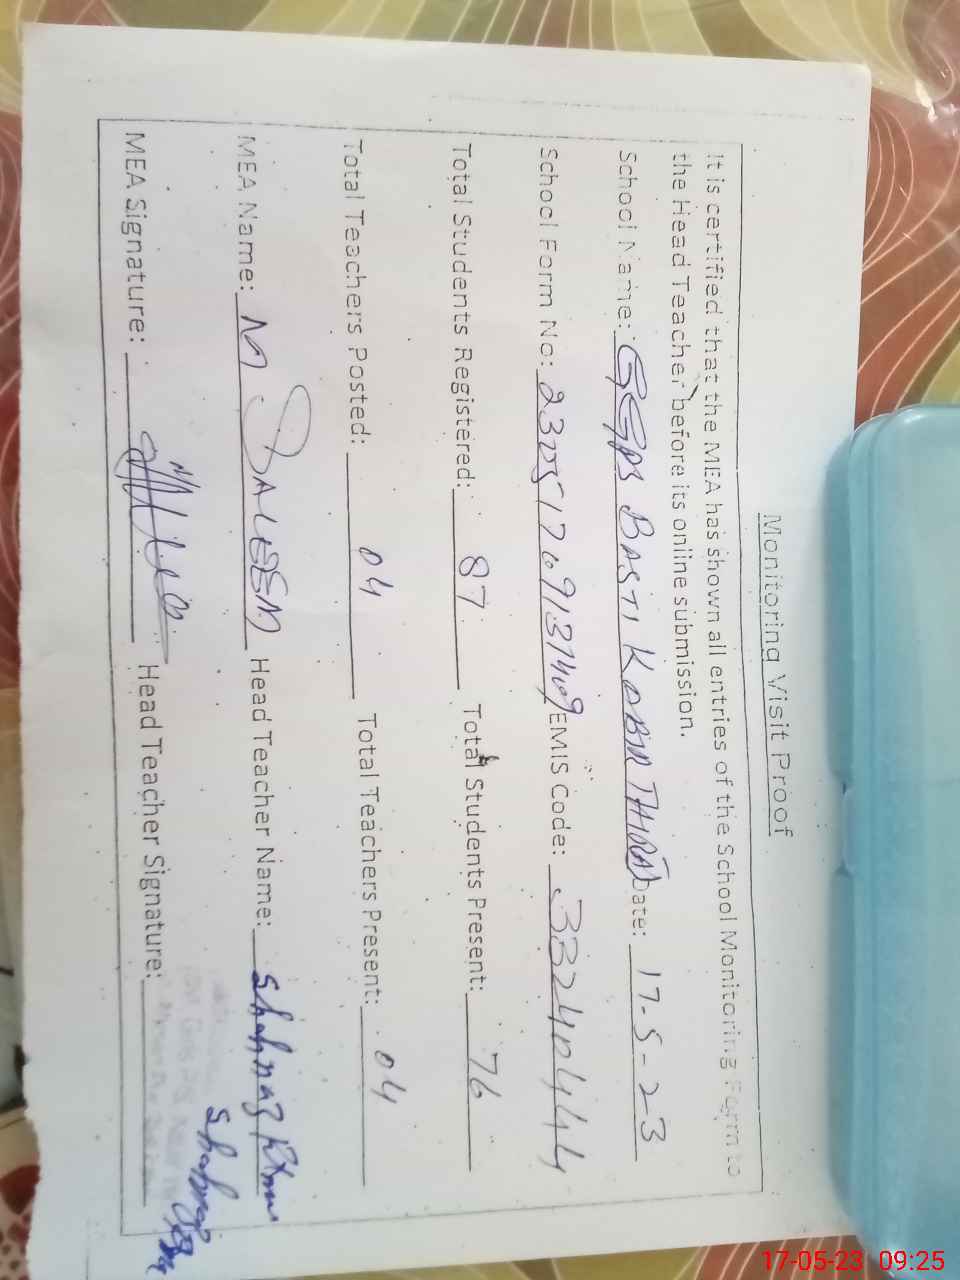 Monitoring Visit Proof
It is certified that the MEA has shown all entries of the School Monitoring Form to
the Head Teacher before its online submission.
School Name: GGPS BASTI KABIR THORA Date: 17-5-23
School Form No: EMIS Code: 33240444
Total Students Registered: 87 Total Students Present: 76
Total Teachers Posted: 04 Total Teachers Present: 04
MEA Name: M SALEEM Head Teacher Name: Shahnaz
MEA Signature: Head Teacher Signature: Shahnaz
17-05-23 09:25